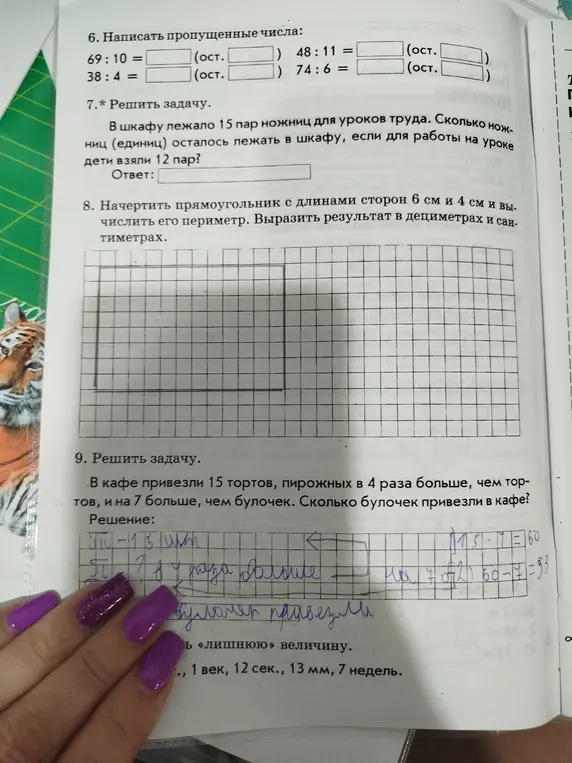 6. Написать пропущенные числа:
69 : 10 = (ост. ) 48 : 11 = (ост. )
38 : 4 = (ост. ) 74 : 6 = (ост. )
7.* Решить задачу.
В шкафу лежало 15 пар ножниц для уроков труда. Сколько нож-
ниц (единиц) осталось лежать в шкафу, если для работы на уроке
дети взяли 12 пар?
Ответ:
8. Начертить прямоугольник с длинами сторон 6 см и 4 см и вы-
числить его периметр. Выразить результат в дециметрах и сан-
тиметрах.
9. Решить задачу.
В кафе привезли 15 тортов, пирожных в 4 раза больше, чем тор-
тов, и на 7 больше, чем булочек. Сколько булочек привезли в кафе?
Решение:
= 60
в 4 раза больше на 7 2) 60-7=53
булочек привезли
ь «лишнюю» величину.
., 1 век, 12 сек., 13 мм, 7 недель.